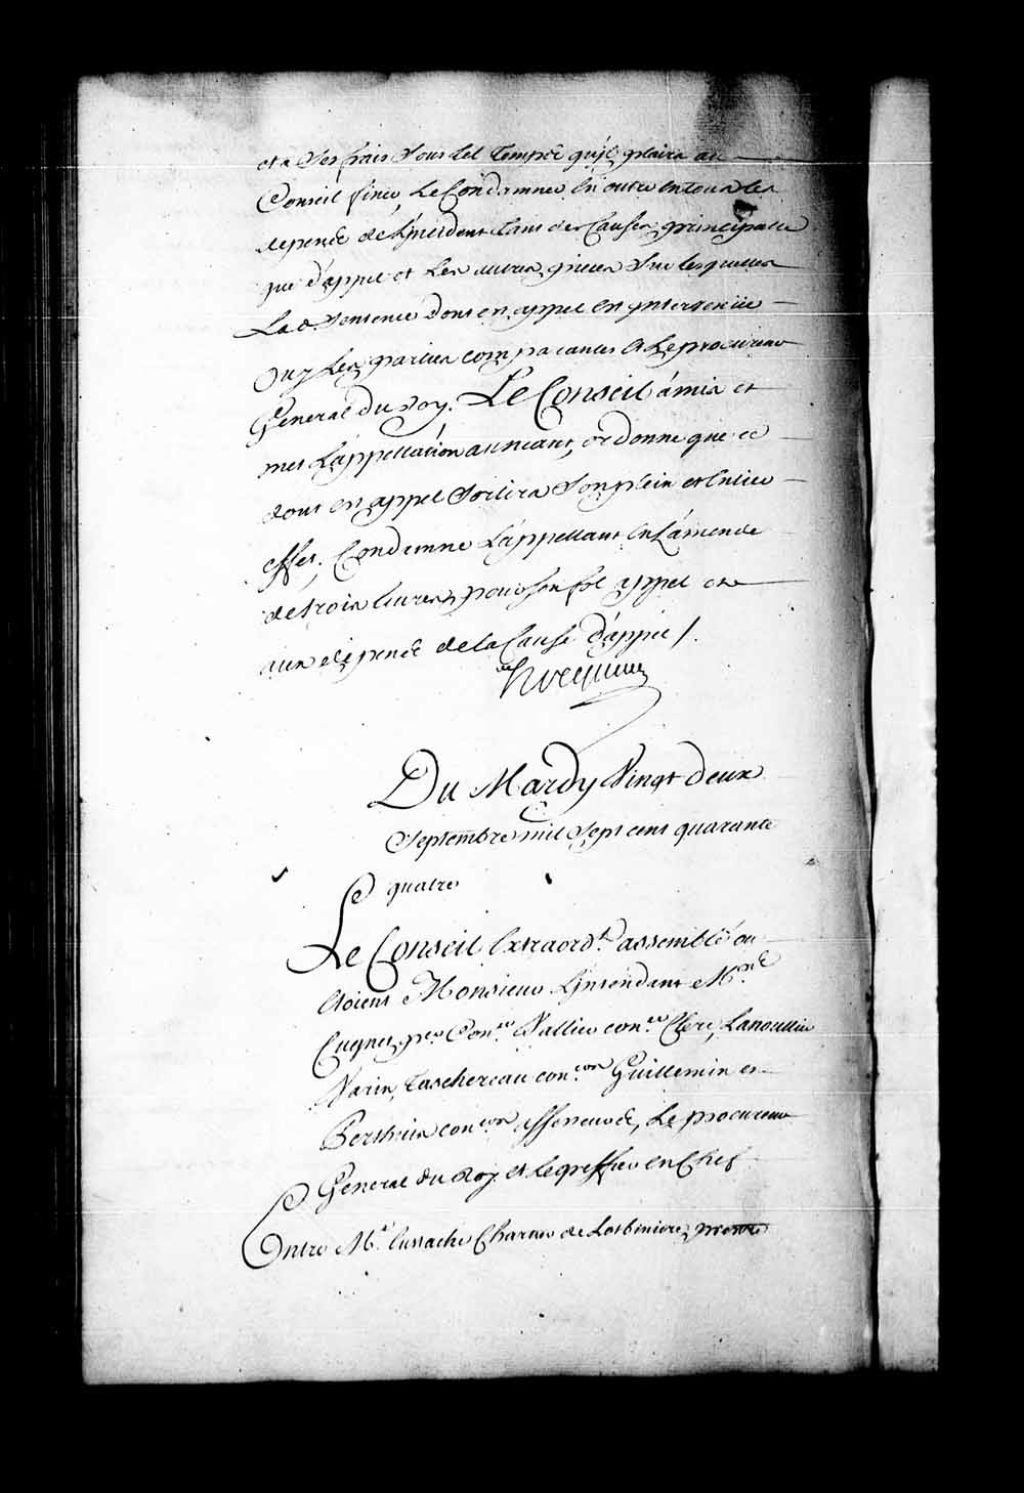 et a ses frais sous tel temps qu'il plaira au
Conseil fixer, Le Condamner en outre en tous les
depens de L'jncident tant des Causes principalle
que d'appel et Les autres pieces sur lesquelles
La d. sentence dont en appel en jntervenüe
Ouy Les parties comparantes et Le procureur
General du Roy. Le Conseil a mis et
met L'appellation au neant, ordonne que ce
dont en appel Sortira Son plein et Entier
effet. Condamne L'appellant En L'amende
de trois livres pour son fol appel et
aux depens de la Cause d'appel /.
hocquart
Du Mardy Vingt deux
Septembre mil Sept cent quarante
quatre
Le Conseil Extraord.t assemblé ou
Etoient Monsieur L'jntendant M.rs
Cugnet pr. Con.er Vallier con.er Clerc, Lanoullier
Varin, Taschereau con.ers Guillemin et
Con.ers assesseurs, Le procureur
General du Roy et Le greffier en Chef
Entre M.e Eustache Chartier de Lotbiniere, prestre